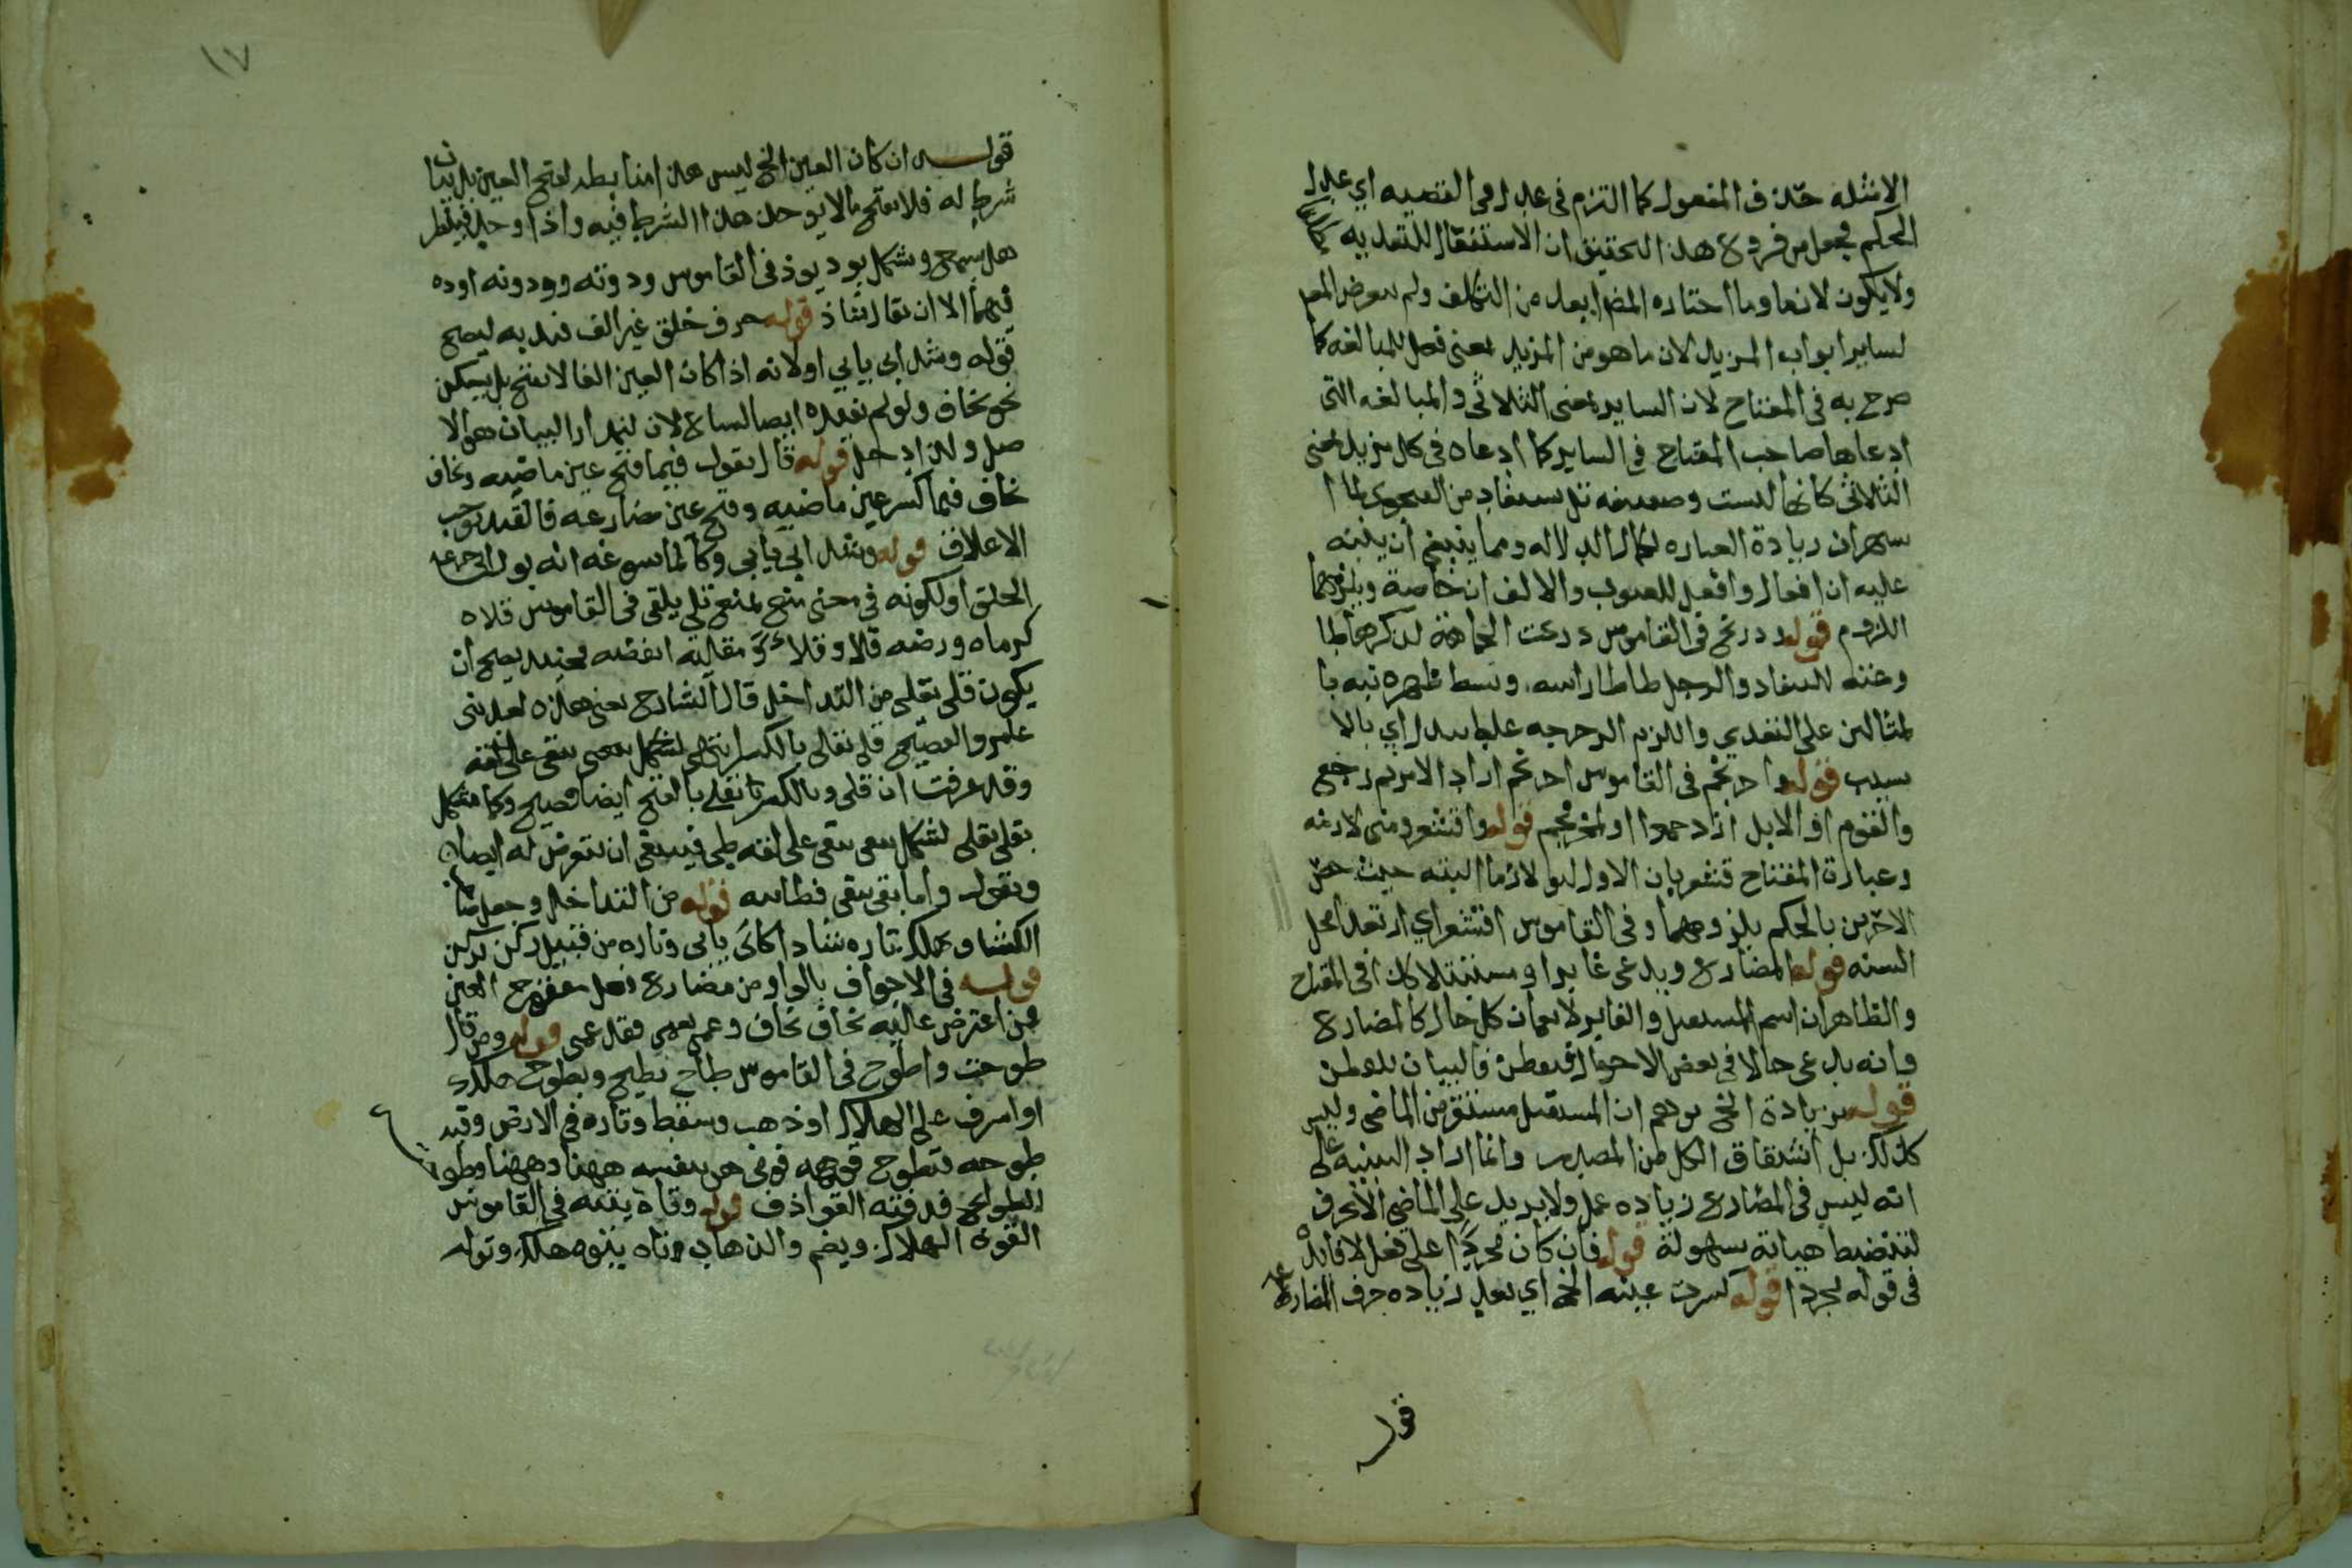 الامثلة حذف المفعول كما التزم في عدل وهي القضيه اي عدل
الحكم فجعل من فروع هذا التحقيق ان الاستفعال للتعديه
ولا يكون لازما وما اختاره المص ابعد من التكلف ولم يتعرض المص
لساير ابواب المزيد لان ما هو من المزيد بمعنى فعل للمبالغه كما
صرح به في المفتاح لان الساير بمعنى الثلاثي والمبالغه التي
ادعاها صاحب المفتاح في الساير كما ادعاه في كل مزيد بمعنى
الثلاثي كانها ليست وضعيه بل يستفاد من الفحوى لما ا
شتهر ان زيادة العباره لكمال الدلاله ومما ينبغي ان ينبه
عليه ان افعال وافعل للعيوب والالوان خاصة ويلزمهما
اللزوم قوله ودربخ في القاموس دربخت الحمامة لذكرها طا
وعته للسفاد والرجل طاطا راسه وبسط ظهره نبه با
لمثالين على التعدي واللزم الدحرجه
بسبب قوله واحرنجم في القاموس احرنجم اراد الامر ثم رجع
والقوم او الابل ازدحموا او المحرنجم قوله واقشعر ومنى لازمه
وعبارة المفتاح تشعر بان الاول ليو لازما البته حيث خص
الاخرين بالحكم بلزومهما وفي القاموس اقشعر اي ارتعد امحل
السنه قوله المضارع ويدعى غابرا ومستقبلا كذا في المفتاح
والظاهر ان اسم المستقبل والغابر لا يعمان كل حال كالمضارع
وانه يدعى حالا في بعض الاحوال فالبيان
قوله بزيادة الخ يوهم ان المستقبل مشتق من الماضي وليس
كذلك بل اشتقاق الكل من المصدر وانما اراد التنبيه على
انه ليس في المضارع زياده عمل ولا يزيد على الماضي الا بحرف
لتنضبط هياته بسهولة قوله فان كان مجردا على فعل لا فايدة
في قوله مجردا قوله كسرت عينه الخ اي بعد زياده حرف المضارعة
قوله
١٧
قوله ان كان العين الخ ليس هذا ضابطه لفتح العين بل بيان
شرط له فلا يفتح ما لا يوجد هذا الشرط فيه واذا وجد فينظر
هل يسمع ويشكل بود يود في القاموس وددته ووددته اوده
فيهما الا ان يقال شاذ قوله حرف حلق غير الف قيد به ليصح
قوله وشذ ابى يابى او لانه اذا كان العين الفا لا يفتح بل يسكن
نحو يخاف ولو لم يقيده ايضا لساغ لان مدار البيان هو الا
صل ولذا دخل قوله قال يقول فيما فتح عين ماضيه وخاف
يخاف فيما كسر عين ماضيه وفتح عين مضارعه فالقيد يوجب
الاعلاف قوله وشذ ابى يابى وكانما سوغه انه يول الى حرف
الحلق او لكونه في معنى منع يمنع قلى يقلى في القاموس قلاه
كرماه ورضيه قلا وقلاء ومقلية ابغضه فحينئذ يصح ان
يكون قلى يقلى من التداخل قال الشارح يعني هذه لغة بني
عامر والفصيح قلى يقلي بالكسر انتهى يشكل ببقى يبقى على لغته
وقد عرفت ان قلى بالكسر يقلى بالفتح ايضا فصيح وكما يشكل
بقلى يقلى يشكل ببقى يبقى على لغه طي فينبغي ان يتعرض له ايضا
ويقول واما بقى يبقى فطائيه قوله من التداخل وجعل صاحب
الكشاف يهلك تاره شاذا كابى يابى وتاره من قبيل ركن يركن
قوله في الاجوف بالواو من مضارع فعل مفتوح العين
فمن اعترض عليه بخاف يخاف وعمي يعمى فقد عمى قوله ومن قال
طوحت واطوح في القاموس طاح يطيح ويطوح هلك
او اشرف على الهلاك او ذهب وسقط وتاه في الارض وقيد
طوحه فتطوح توهه فرمى هو بنفسه ههنا وههنا وطو
الطوايح قذفته القواذف قوله وتاه يتيه في القاموس
التوه الهلاك ويضم والذهاب وتاه يتوه هلك وتوله